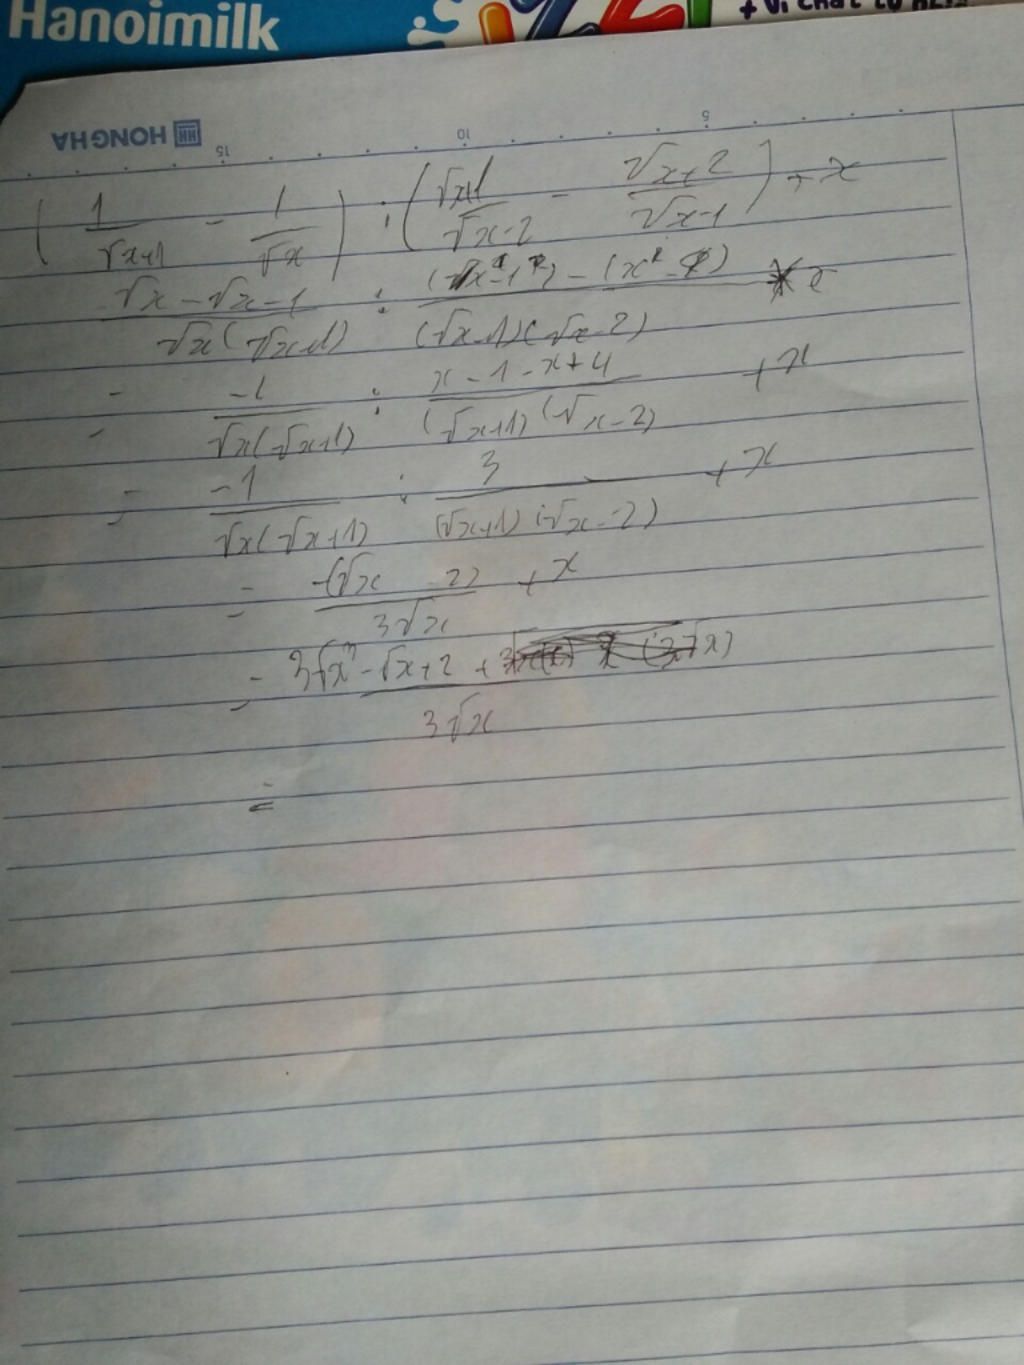 Hanoimilk
+ Vi chất từ
HONG HA
15 10 5
( 1/(√x+1) - 1/√x ) : ( (√x+1)/(√x-2) - (√x+2)/(√x-1) ) + x
(√x - √x - 1)/(√x(√x+1)) : ((x-1) - (x-4))/((√x-1)(√x-2))
= -1/(√x(√x+1)) : (x - 1 - x + 4)/((√x+1)(√x-2)) + x
= -1/(√x(√x+1)) : 3/((√x+1)(√x-2)) + x
= -(√x - 2)/(3√x) + x
= (3√x³ - √x + 2)/(3√x)
=